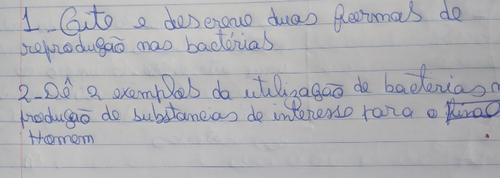 1. Cite e descreve duas formas de
reprodução nas bactérias
2-Dê 2 exemplos da utilização de bacterias n
produção de substancias de interesse para o
Homem